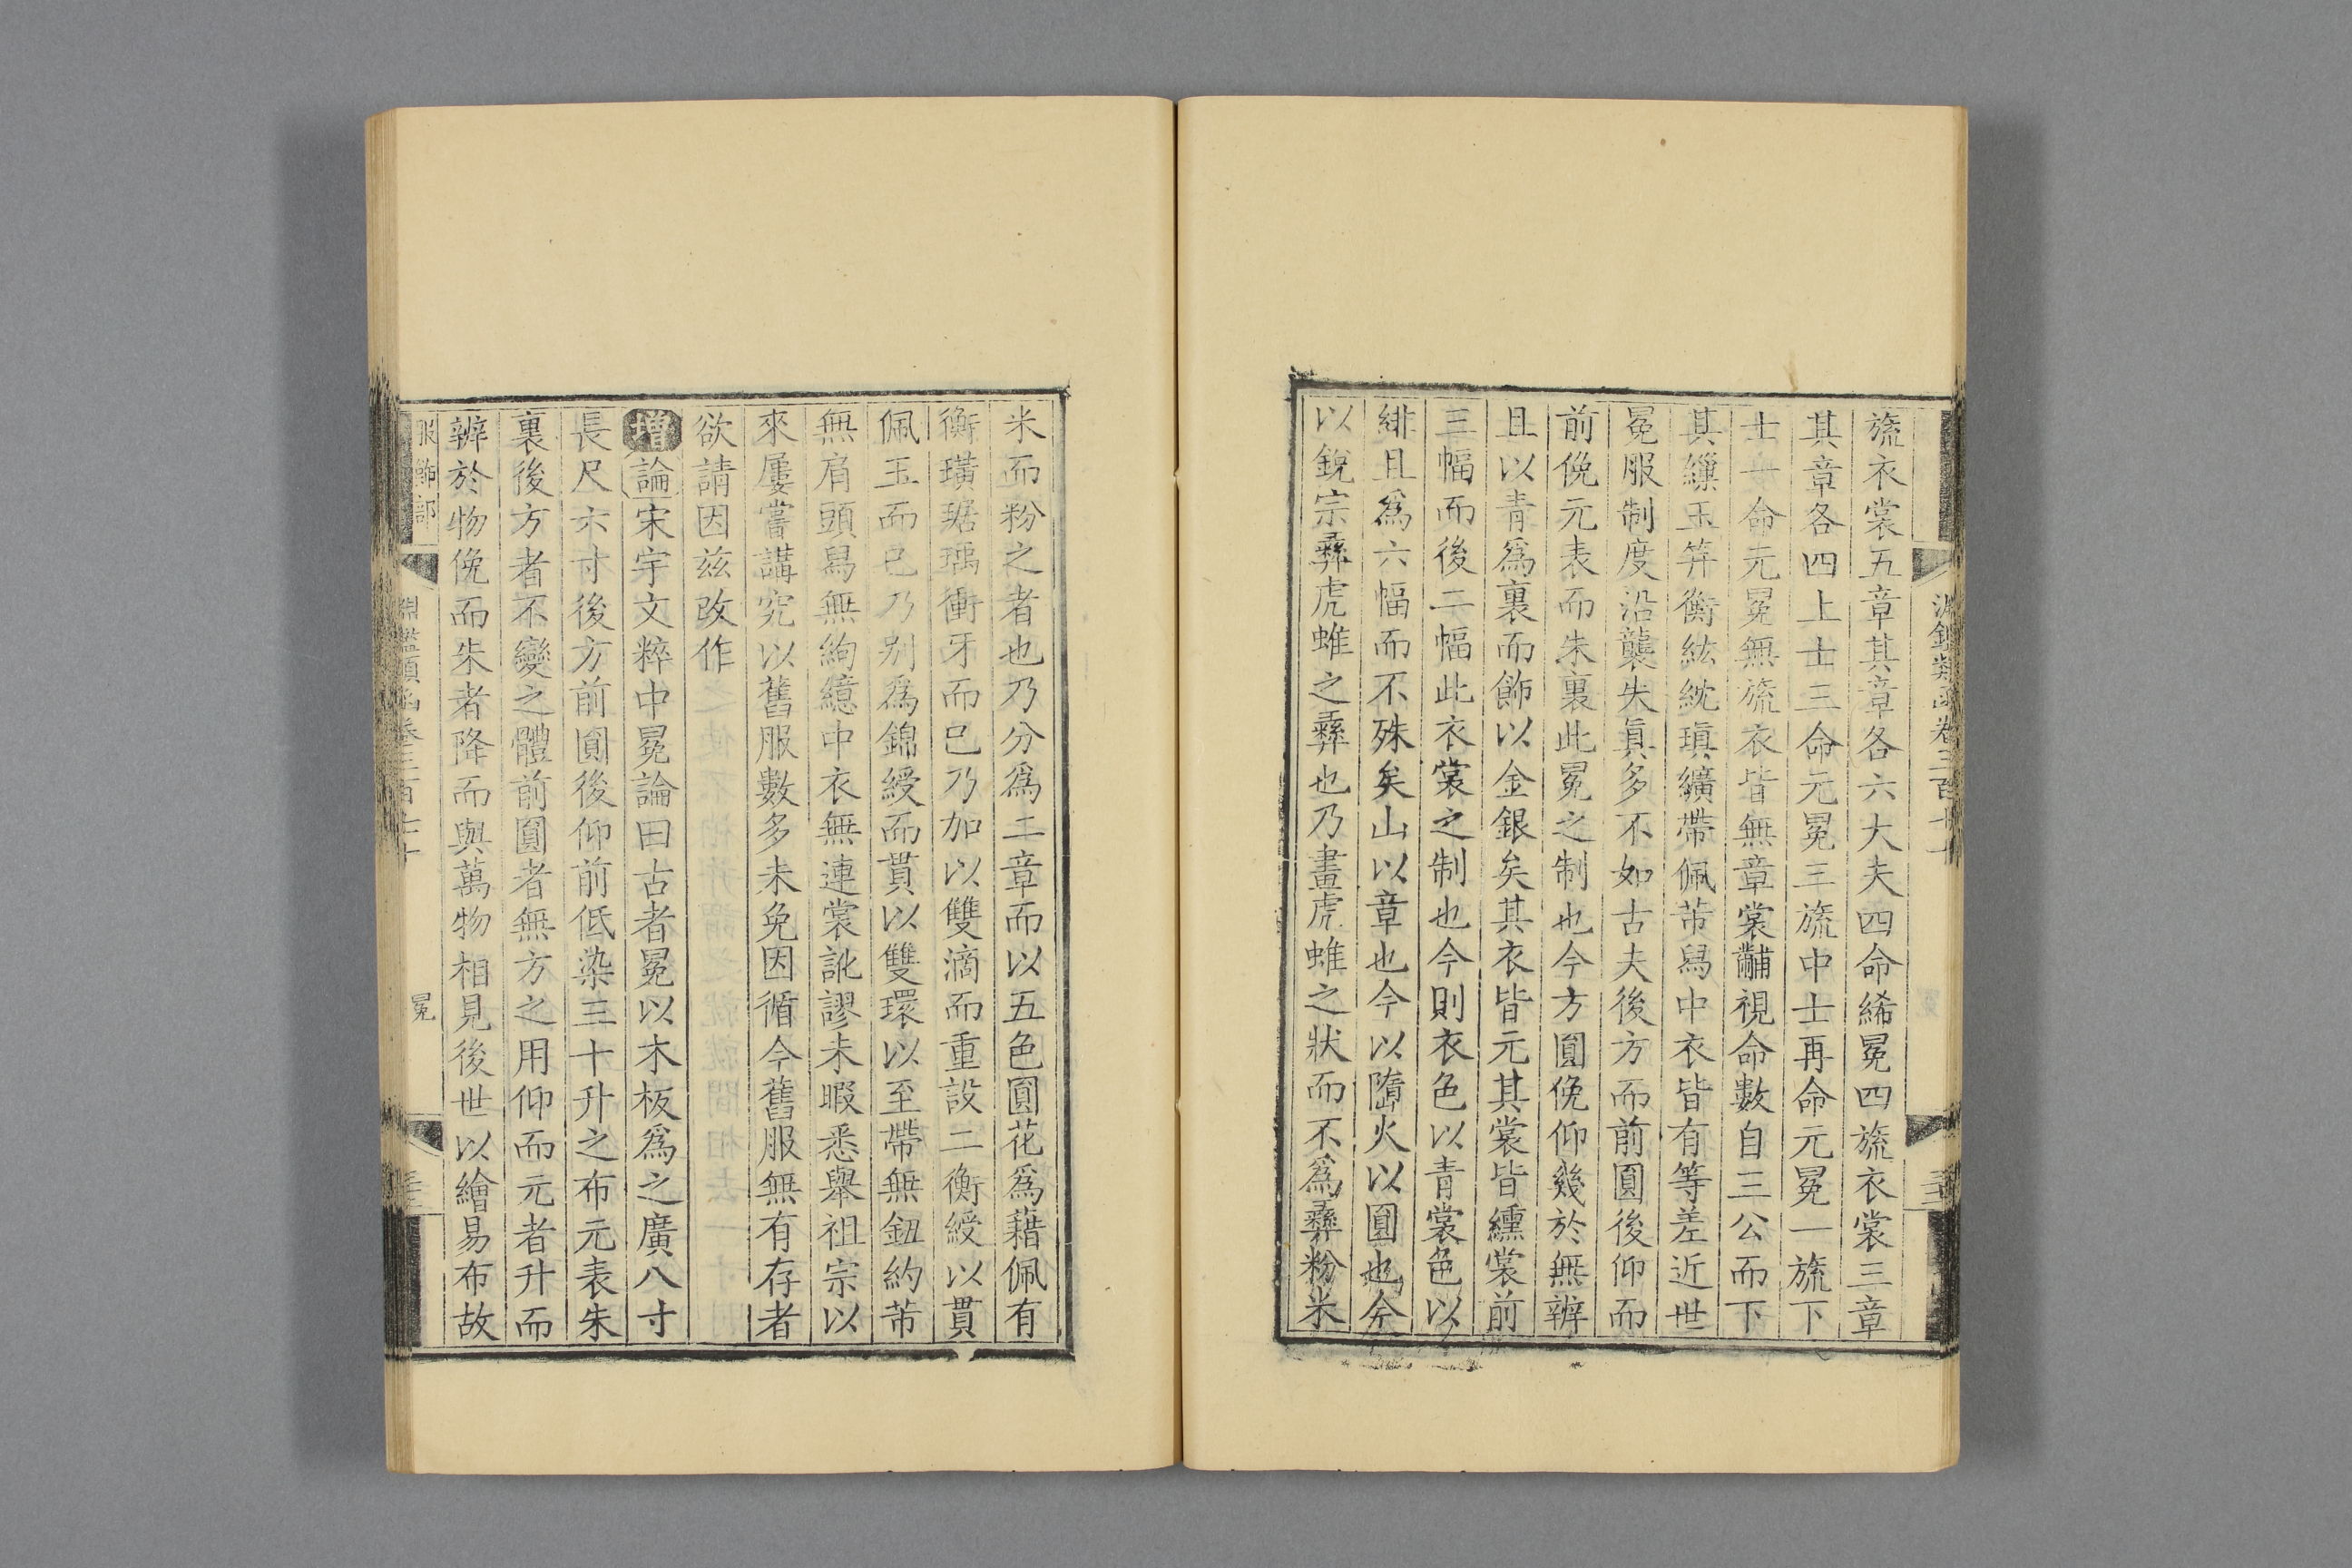 旒衣裳五章其章各六大夫四命絺冕四旒衣裳三章
其章各四上士三命元冕三旒中士再命元冕一旒下
士一命元冕無旒衣皆無章裳黼視命數自三公而下
其繅玉笄衡紘紞瑱纊帶佩芾舄中衣皆有等差近世
冕服制度沿襲失眞多不如古夫後方而前圓後仰而
前俛元表而朱裏此冕之制也今方圓俛仰幾於無辨
且以青爲裏而飾以金銀矣其衣皆元其裳皆纁裳前
三幅而後二幅此衣裳之制也今則衣色以青裳色以
緋且爲六幅而不殊矣山以章也今以隋火以圓也今
以銳宗彝虎蜼之彝也乃畫虎蜼之狀而不爲彝粉米
米而粉之者也乃分爲二章而以五色圓花爲藉佩有
衡璜琚瑀衝牙而已乃加以雙滴而重設二衡綬以貫
佩玉而已乃别爲錦綬而貫以雙環以至帶無鈕約芾
無肩頭舄無絇繶中衣無連裳訛謬未暇悉舉祖宗以
來屢嘗講究以舊服數多未免因循今舊服無有存者
欲請因茲改作
增論宋宇文粹中冕論曰古者冕以木板爲之廣八寸
長尺六寸後方前圓後仰前低染三十升之布元表朱
裏後方者不變之體前圓者無方之用仰而元者升而
辨於物俛而朱者降而與萬物相見後世以繪易布故
服飾部
淵鑑類函卷三百七十
冕